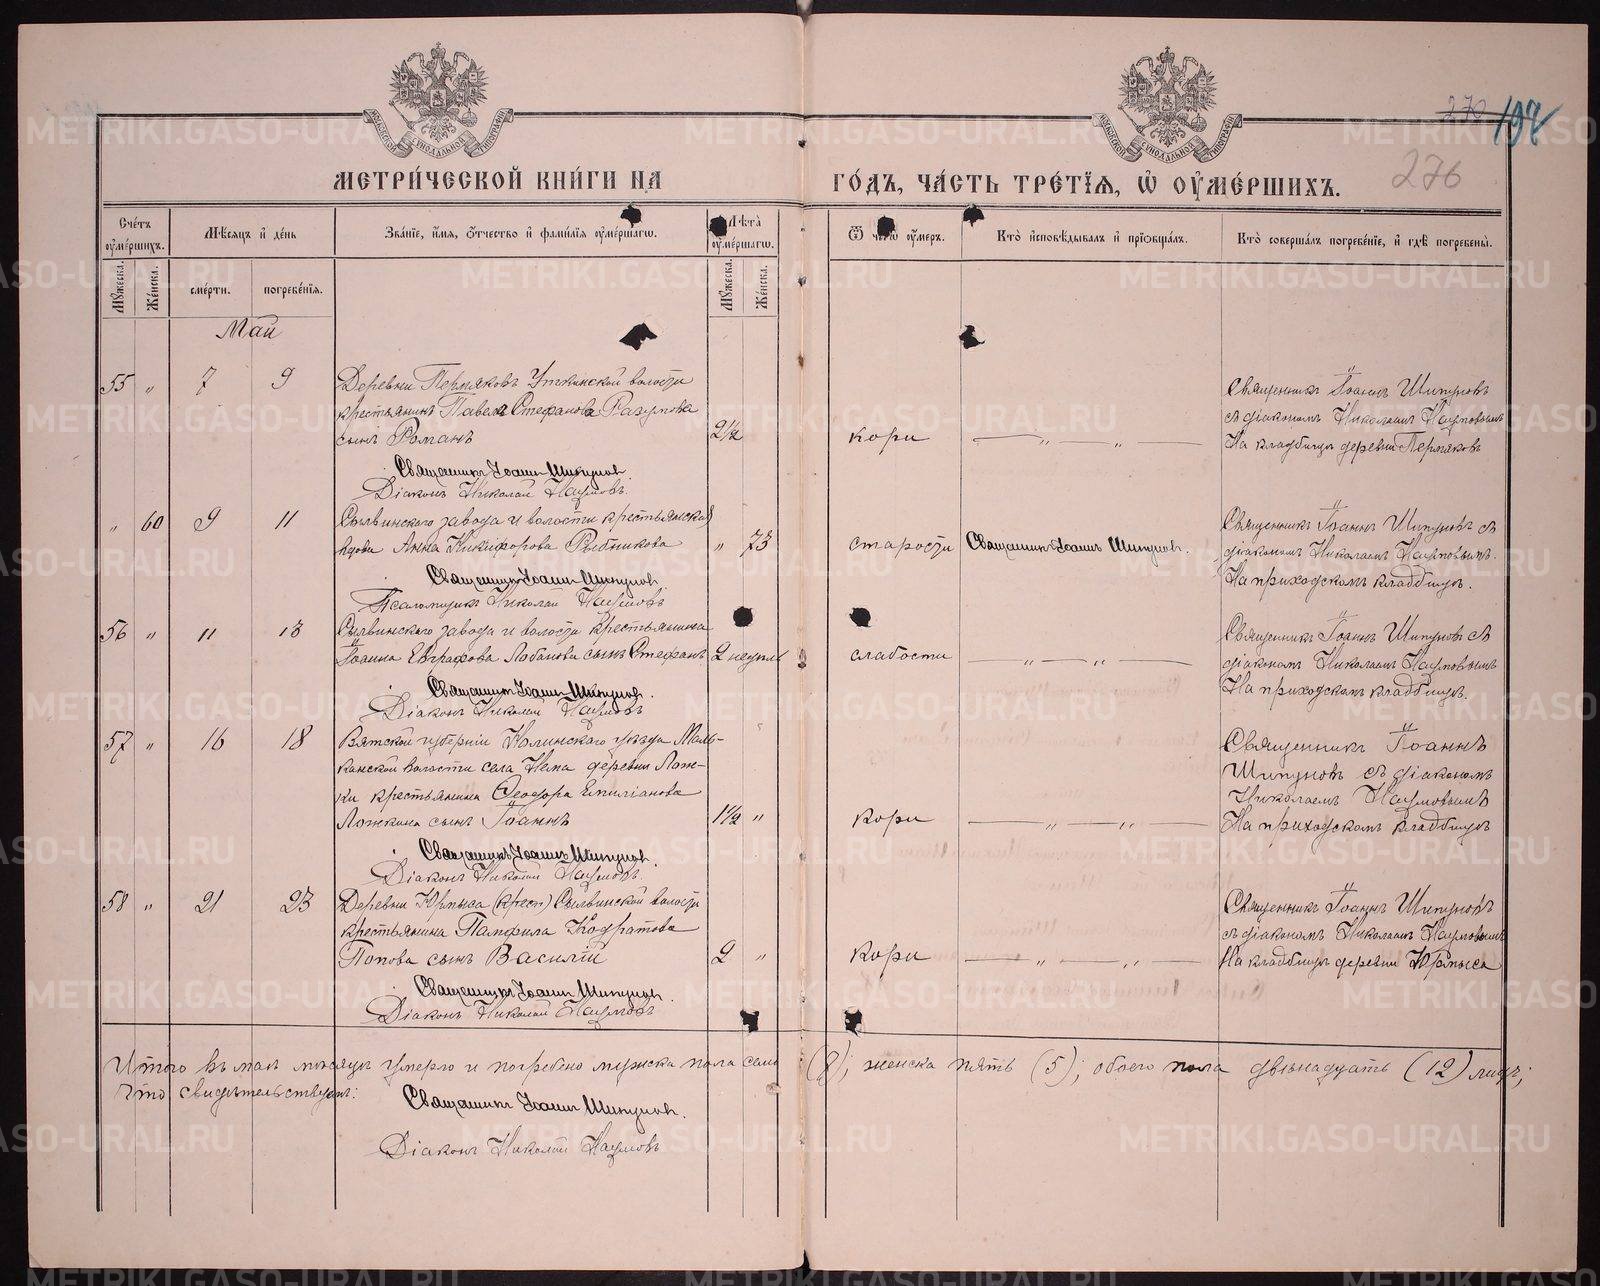 МЕТРИЧЕСКОЙ КНИГИ НА
ГОДЪ, ЧАСТЬ ТРЕТІЯ, Ѿ ОУМЕРШИХЪ.
270 197
276
Счетъ оумершихъ.
Мѣсяцъ и день
Званіе, имя, отчество и фамилія оумершагѡ.
Лѣта оумершагѡ.
Ѿ чегѡ оумеръ.
Кто исповѣдывалъ и пріобщалъ.
Кто совершалъ погребеніе, и гдѣ погребены.
Мужеска.
Женска.
смерти.
погребенія.
Мужеска.
Женска.
Май
55 " 7 9 Деревни Пермяковъ Уткинской волости
крестьянина Павла Стефанова Разумова
сынъ Романъ 2½ кори — " — " —
Священникъ Іоаннъ Шипуновъ
съ діакономъ Николаемъ Наумовымъ
На кладбищѣ деревни Пермяковъ
Священникъ Іоаннъ Шипуновъ
Діаконъ Николай Наумовъ.
" 60 9 11 Сылвинского завода и волости крестьянская
вдова Анна Никифорова Рыбникова " 73 старости Священникъ Іоаннъ Шипуновъ.
Священникъ Іоаннъ Шипуновъ съ
діакономъ Николаемъ Наумовымъ.
На приходскомъ кладбищѣ.
Священникъ Іоаннъ Шипуновъ
Псаломщикъ Николай Наумовъ
56 " 11 13 Сылвинского завода и волости крестьянина
Іоанна Евграфова Лобанова сынъ Стефанъ 2 недѣли слабости — " — " —
Священникъ Іоаннъ Шипуновъ съ
діакономъ Николаемъ Наумовымъ
На приходскомъ кладбищѣ.
Священникъ Іоаннъ Шипуновъ.
Діаконъ Николай Наумовъ
57 " 16 18 Вятской губерніи Нолинского уѣзда
волости села Нема деревни Лож-
ки крестьянина Ѳеодора Емиліанова
Ложкина сынъ Іоаннъ 1½ " кори — " — " —
Священникъ Іоаннъ
Шипуновъ съ діакономъ
Николаемъ Наумовымъ
На приходскомъ кладбищѣ
Священникъ Іоаннъ Шипуновъ.
Діаконъ Николай Наумовъ.
58 " 21 23 Деревни Юрмыса (Крест) Сылвинской волости
крестьянина Памфила Кодратова
Попова сынъ Василій 2 " Кори — " — " —
Священникъ Іоаннъ Шипуновъ
съ діакономъ Николаемъ Наумовымъ
На кладбищѣ деревни Юрмыса
Священникъ Іоаннъ Шипуновъ.
Діаконъ Николай Наумовъ
Итого въ маѣ мѣсяцѣ умерло и погребено мужска пола семь (7); женска пять (5); обоего пола двѣнадцать (12) лицъ;
Что свидѣтельствуемъ:
Священникъ Іоаннъ Шипуновъ.
Діаконъ Николай Наумовъ
METRIKI.GASO-URAL.RU